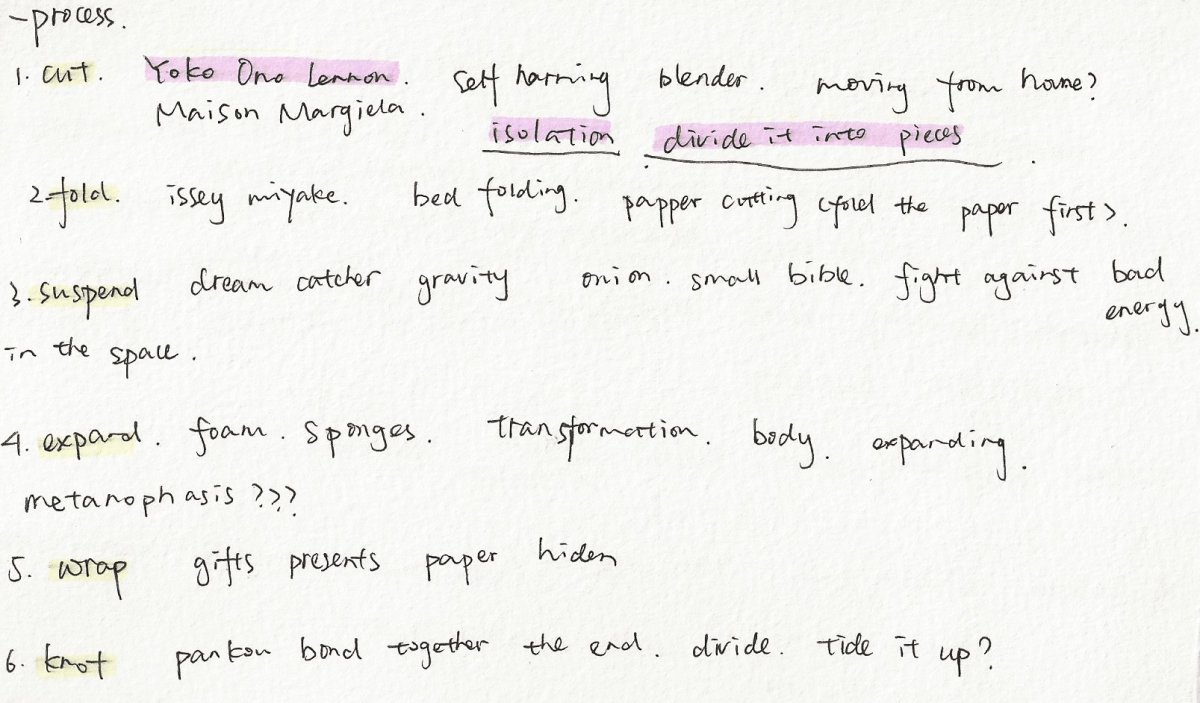 -process.
1. cut. Yoko Ono Lennon. self harming blender. moving from home?
Maison Margiela.
isolation divide it into pieces
2. fold. issey miyake. bed folding. papper cutting <fold the paper first>.
3. suspend dream catcher gravity onion. small bible. fight against bad
energy.
in the space.
4. expand. foam. sponges. transformation. body. expanding.
metanophasis???
5. wrap gifts presents paper hiden
6. knot pankou bond together the end. divide. tide it up?